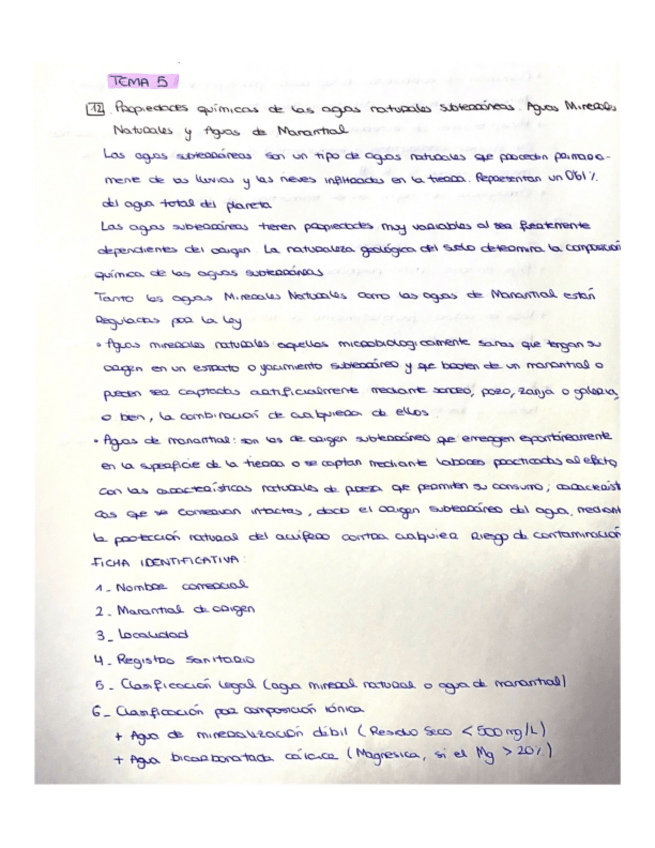 TEMA 5
12. Propiedades químicas de las aguas naturales subterráneas. Aguas Minerales
Naturales y Aguas de Manantial
Las aguas subterráneas son un tipo de aguas naturales que proceden primaria-
mente de las lluvias y las nieves infiltradas en la tierra. Representan un 0'61%
del agua total del planeta
Las aguas subterráneas tienen propiedades muy variables al ser fuertemente
dependientes del origen. La naturaleza geológica del suelo determina la composición
química de las aguas subterráneas
Tanto las aguas Minerales Naturales como las aguas de Manantial están
Reguladas por la ley
• Aguas minerales naturales aquellas microbiologicamente sanas que tengan su
origen en un estrato o yacimiento subterráneo y que broten de un manantial o
pueden ser captadas artificialmente mediante sondeo, pozo, zanja o galería,
o bien, la combinación de cualquiera de ellos.
• Aguas de manantial: son las de origen subterráneo que emergen espontáneamente
en la superficie de la tierra o se captan mediante labores practicadas al efecto,
con las características naturales de pureza que permiten su consumo; característi
cas que se conservan intactas, dado el origen subterráneo del agua, mediant
la protección natural del acuífero contra cualquier riesgo de contaminación
FICHA IDENTIFICATIVA:
1_ Nombre comercial
2_ Manantial de origen
3_ Localidad
4_ Registro sanitario
5_ Clasificación legal (agua mineral natural o agua de manantial)
6_ Clasificación por composición iónica
+ Agua de mineralización débil (Residuo Seco < 500 mg/L)
+ Agua bicarbonatada cálcica (Magnésica, si el Mg > 20%)